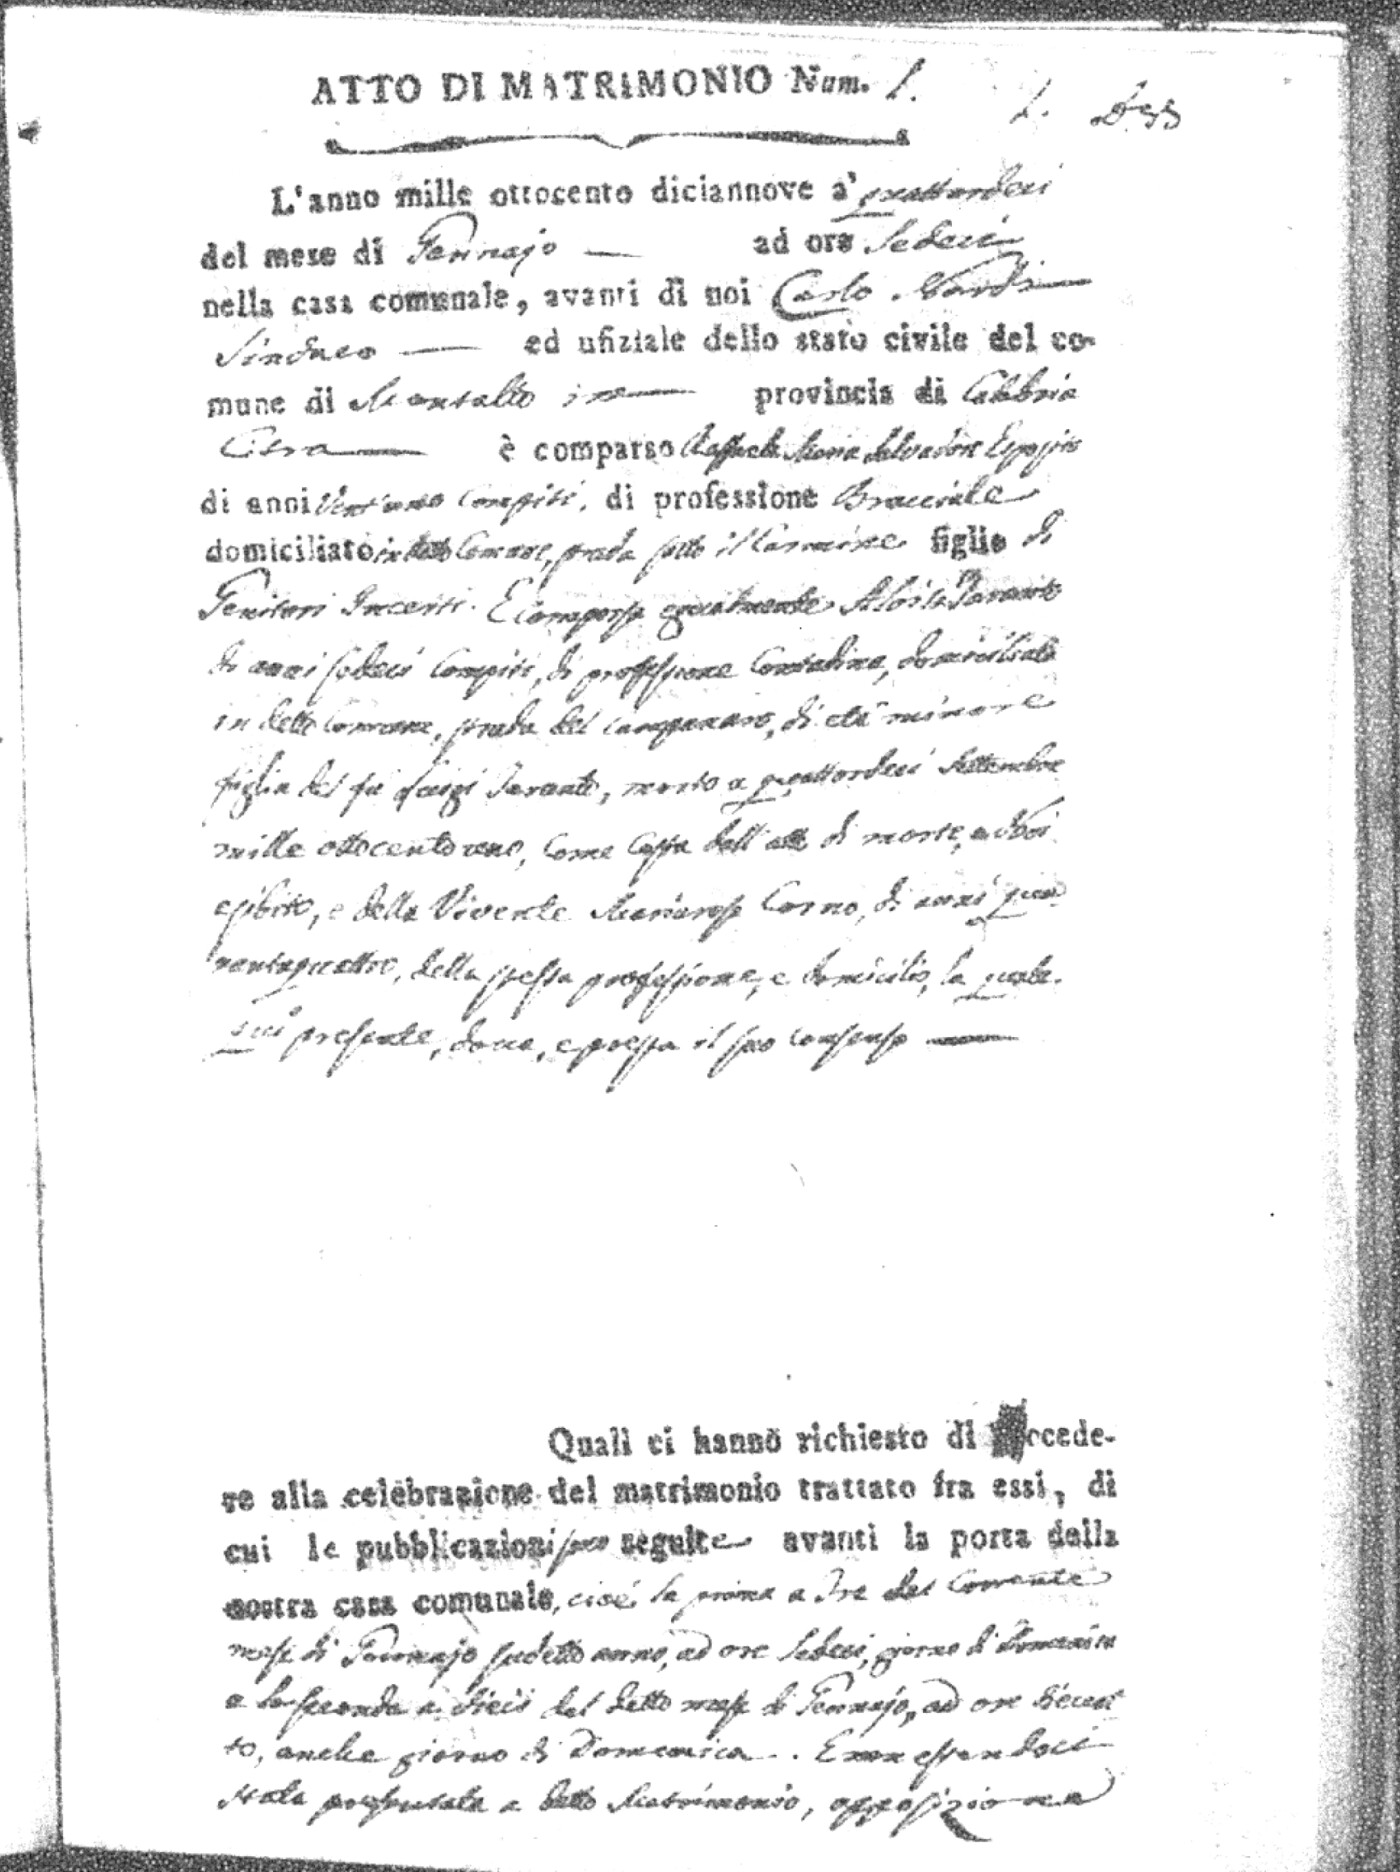 ATTO DI MATRIMONIO Num. 1.
L'anno mille ottocento diciannove a' quattordeci
del mese di Gennajo — ad ore Sedeci
nella casa comunale, avanti di noi Carlo Nardi —
Sindaco — ed ufiziale dello stato civile del co-
mune di Montalto — provincia di Calabria
Citra — è comparso Raffaele Maria Salvadore Esposito
di anni Vent'uno Compiti, di professione Bracciale
domiciliato in detto Comune, strada sotto il Carmine figlio di
Genitori Incerti. E comparsa egualmente Aloisia Tarante
di anni sedeci Compiti, di professione Contadina, domiciliata
in detto Comune, strada del campanaro, di età minore
figlia del fu Luigi Tarante, morto a quattordeci Settembre
mille ottocento uno, Come Costa dall' atto di morte, a Noi
esibito, e della Vivente Mariarosa Corno, di anni qua-
rantaquattro, della stessa professione, e domicilio, la quale
qui presente, dona, e presta il suo consenso —
Quali ci hanno richiesto di procede-
re alla celebrazione del matrimonio trattato fra essi, di
cui le pubblicazioni sono seguite avanti la porta della
nostra casa comunale, cioè la prima a Tre del Corrente
mese di Gennajo sudetto anno, ad ore Sedeci, giorno di Domenica
e la seconda a dieci del detto mese di Gennajo, ad ore dieciot
to, anche giorno di Domenica. E non essendoci
stata presentata a detto Matrimonio, opposizione